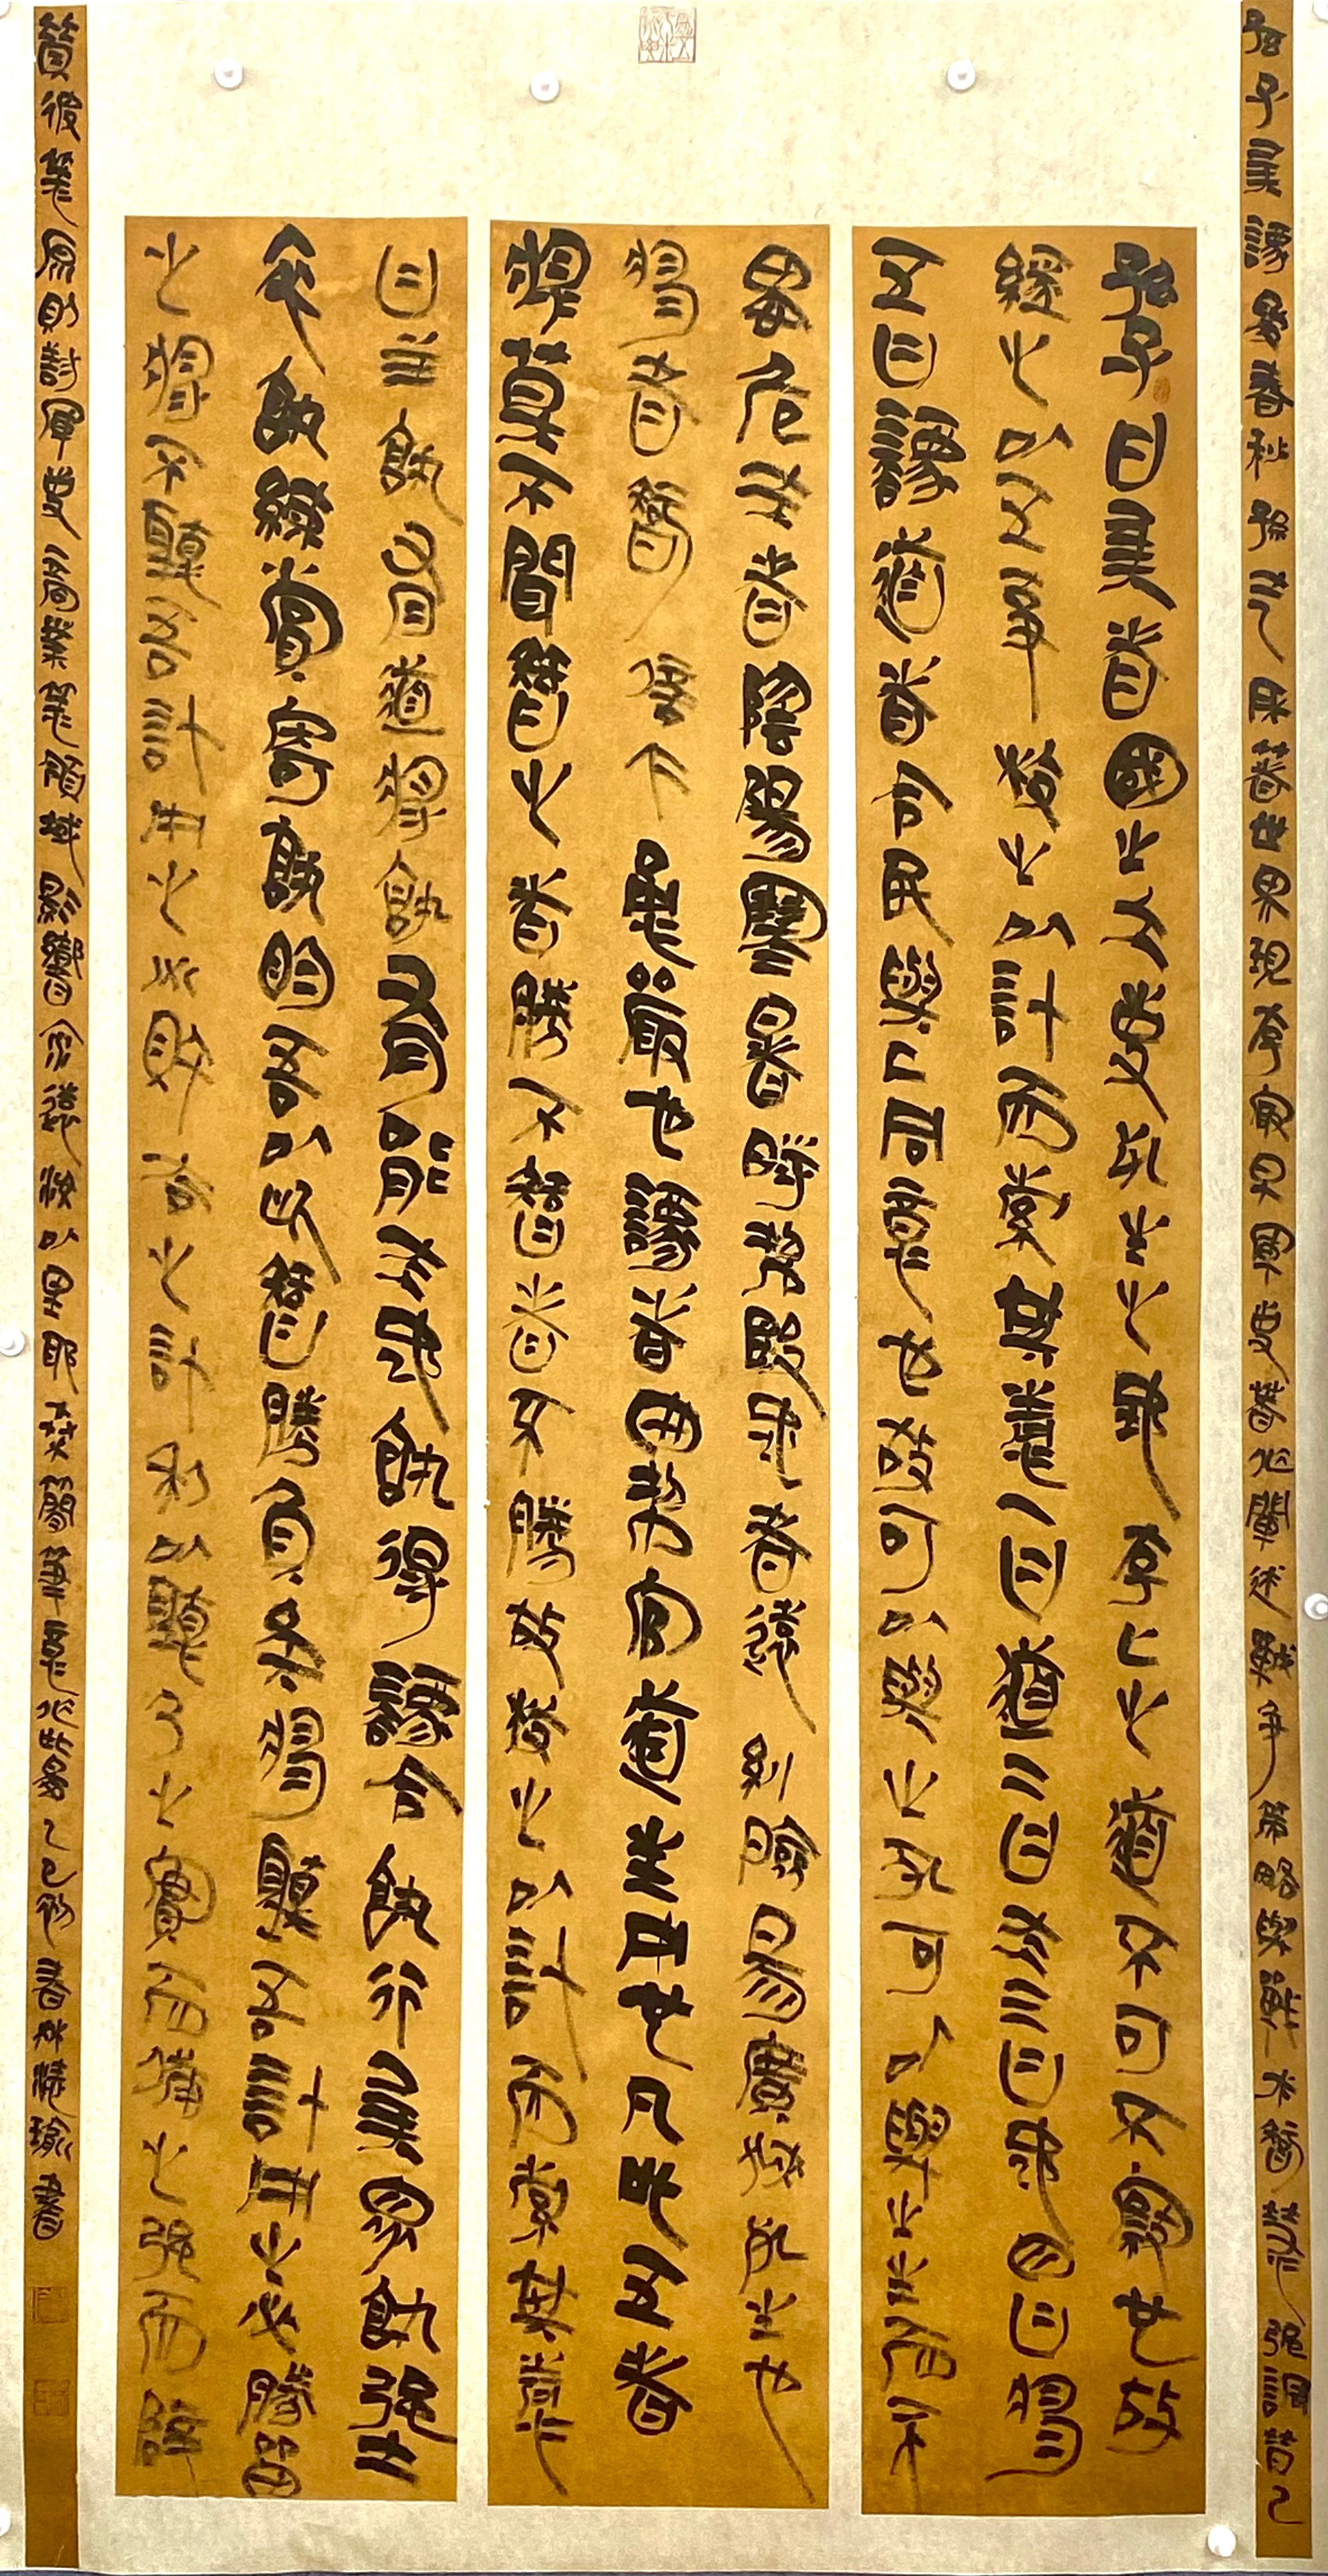 孫子兵灋是春秋孫武所著世界現存最早軍事著作闡述戰爭策略與戰術智慧強調知己
孫子曰兵者國之大事死生之地存亡之道不可不察也故
經之以五事校之以計而索其情一曰道二曰天三曰地四曰將
五曰灋道者令民與上同意也故可以與之死可以與之生而不
畏危天者陰陽寒暑時制殹地者遠近險易廣狹死生也
將者智信仁勇嚴也灋者曲制官道主用也凡此五者
將莫不聞智之者勝不智者不勝故校之以計而索其情
曰主孰有道將孰有能天地孰得灋令孰行兵眾孰強士
卒孰練賞罰孰明吾以此智勝負矣將聽吾計用之必勝留
之將不聽吾計用之必敗去之計利以聽乃之實而備之強而避
彼等原則對軍事商業等領域影響深遠以里耶秦簡筆意作此乙巳初春瑜書